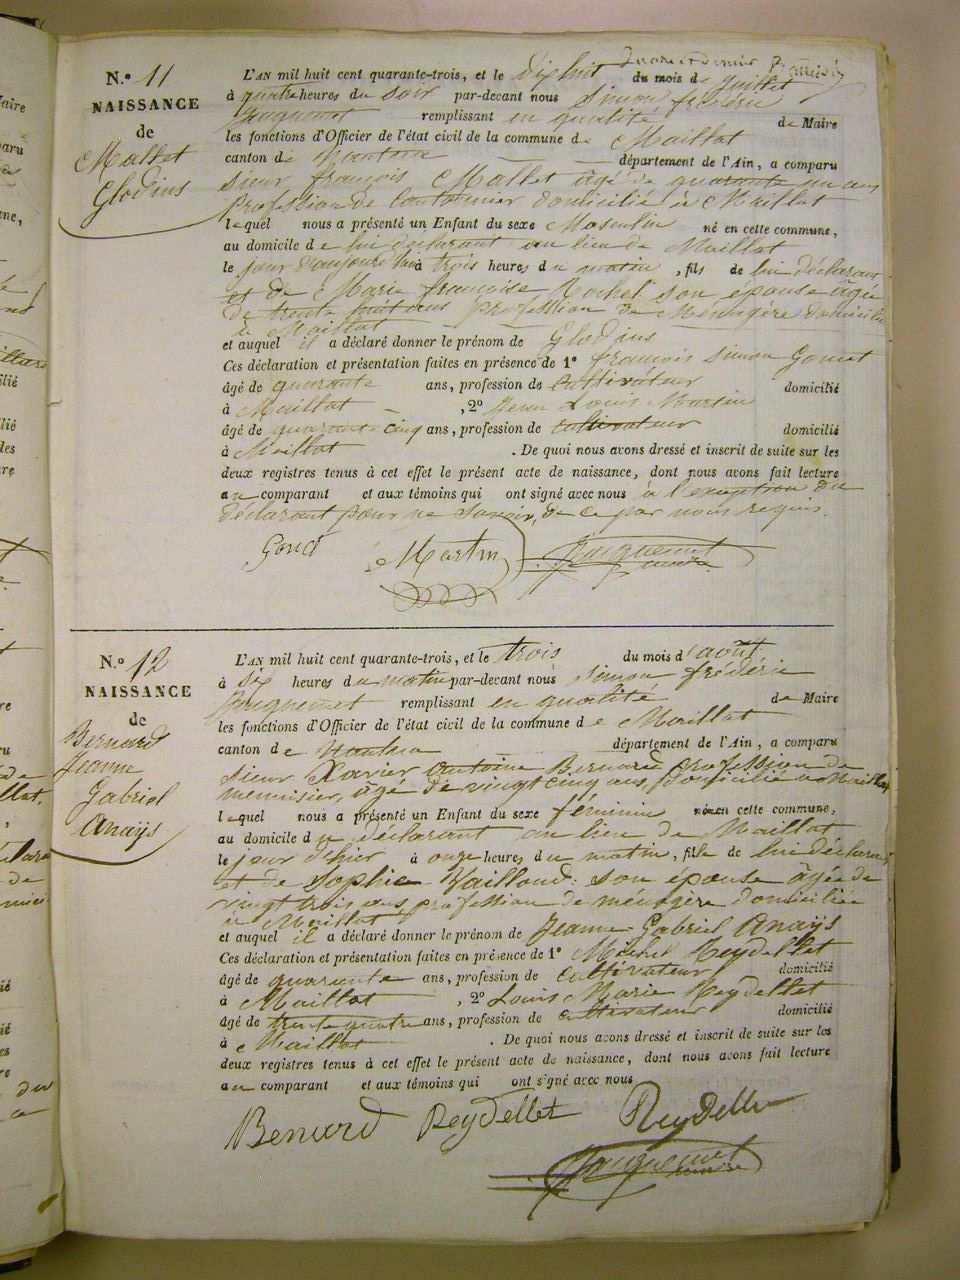 N.º 11
NAISSANCE
de
Mallet
Glodius
L'AN mil huit cent quarante-trois, et le dix huit du mois de juillet
à quatre heures du soir par-devant nous Simon frédéric
Jacquemet remplissant en qualité de Maire
les fonctions d'Officier de l'état civil de la commune de Maillat
canton de Nantua département de l'Ain, a comparu
sieur françois Mallet âgé de quarante un ans
profession de cantonnier domicilié à Maillat
lequel nous a présenté un Enfant du sexe Masculin né en cette commune,
au domicile de lui déclarant au lieu de Maillat
le jour d'aujourd'hui à trois heures du matin, fils de lui déclarant
et de Marie françoise Rochel son épouse âgée
de trente huit ans profession de Ménagère domiciliée
à Maillat
et auquel il a déclaré donner le prénom de Glodius
Ces déclaration et présentation faites en présence de 1º françois Simon
âgé de quarante ans, profession de cultivateur domicilié
à Maillat, 2º Jean Louis Martin
âgé de quarante cinq ans, profession de cultivateur domicilié
à Maillat. De quoi nous avons dressé et inscrit de suite sur les
deux registres tenus à cet effet le présent acte de naissance, dont nous avons fait lecture
au comparant et aux témoins qui ont signé avec nous à l'exception du
déclarant pour ne savoir, de ce par nous requis.
Martin Jacquemet
maire
N.º 12
NAISSANCE
de
Bernard
Jeanne
Gabriel
Anaÿs
L'AN mil huit cent quarante-trois, et le trois du mois d'août
à six heures du matin par-devant nous Simon frédéric
Jacquemet remplissant en qualité de Maire
les fonctions d'Officier de l'état civil de la commune de Maillat
canton de Nantua département de l'Ain, a comparu
sieur Xavier Antoine Bernard profession de
menuisier, âgé de vingt cinq ans, domicilié à Maillat
lequel nous a présenté un Enfant du sexe féminin né en cette commune,
au domicile du déclarant au lieu de Maillat
le jour d'hier à onze heures du matin, fille de lui déclarant
et de Sophie Vailloud son épouse âgée de
vingt trois ans profession de ménagère domiciliée
à Maillat
et auquel il a déclaré donner le prénom de Jeanne Gabriel Anaÿs
Ces déclaration et présentation faites en présence de 1º Michel Reydellet
âgé de quarante ans, profession de cultivateur domicilié
à Maillat, 2º Louis Marie Reydellet
âgé de trente quatre ans, profession de cultivateur domicilié
à Maillat. De quoi nous avons dressé et inscrit de suite sur les
deux registres tenus à cet effet le présent acte de naissance, dont nous avons fait lecture
au comparant et aux témoins qui ont signé avec nous
Bernard Reydellet Reydellet
Jacquemet
maire